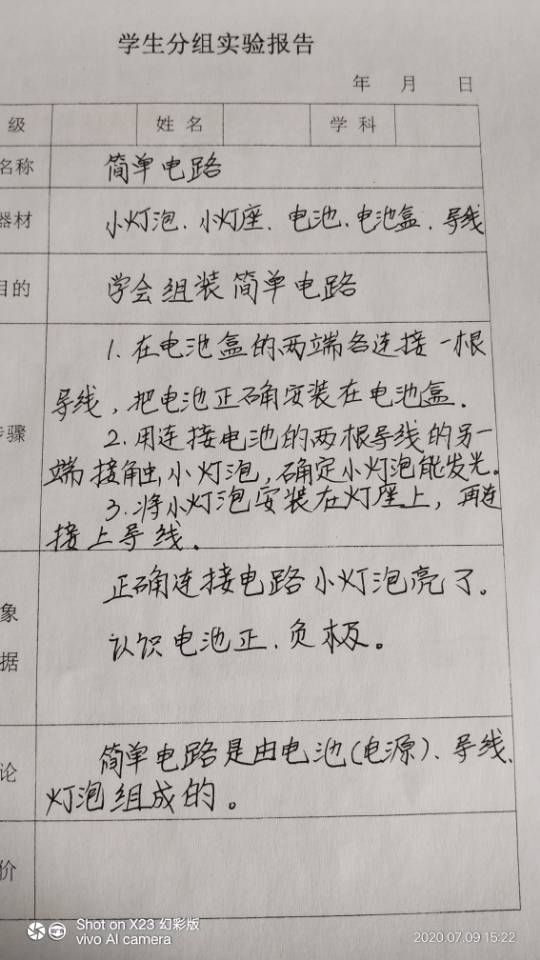 学生分组实验报告
年 月 日
级 姓名 学科
名称 简单电路
器材 小灯泡、小灯座、电池、电池盒、导线
目的 学会组装简单电路
1.在电池盒的两端各连接一根
导线，把电池正确安装在电池盒.
骤 2.用连接电池的两根导线的另一
端接触小灯泡，确定小灯泡能发光。
3.将小灯泡安装在灯座上，再连
接上导线.
正确连接电路小灯泡亮了。
象
认识电池正、负极。
据
简单电路是由电池(电源)、导线、
论
灯泡组成的。
价
Shot on X23 幻彩版
vivo AI camera
2020.07.09 15:22